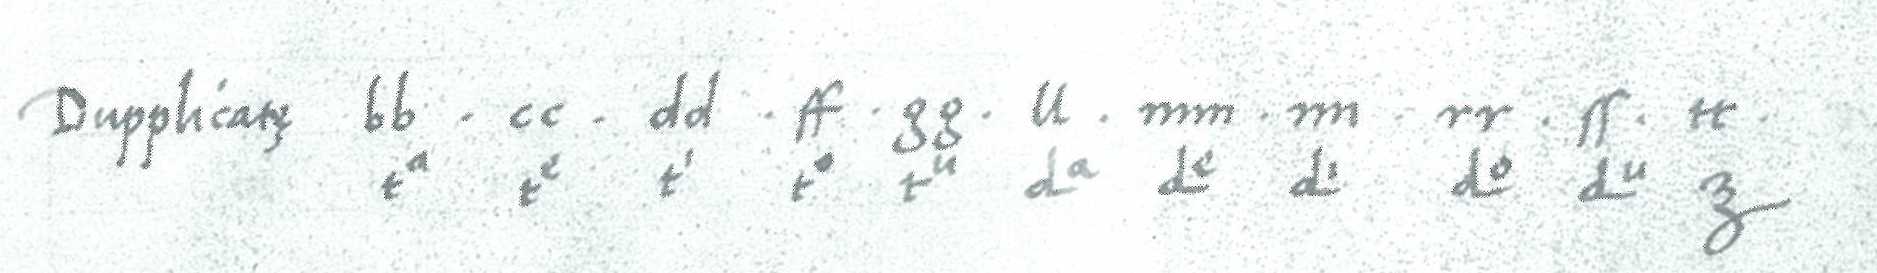 Dupplicatę bb . cc . dd . ff . gg . ll . mm . nn . rr . ſſ . tt .
tᵃ tᵉ tⁱ tᵒ tᵘ dᵃ dᵉ dⁱ dᵒ dᵘ ʒ